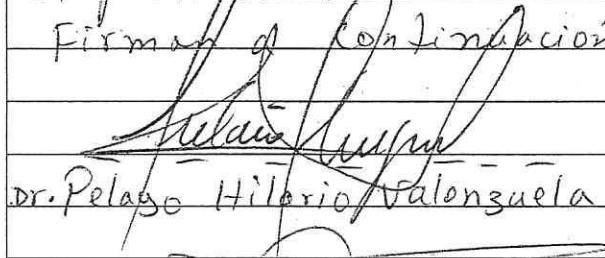 Firman a Continuación
Dr. Pelayo Hilario Valenzuela